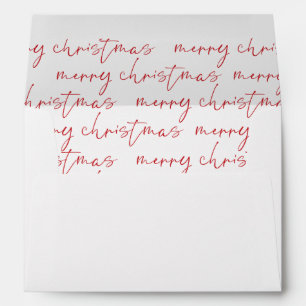 ry christmas merry chris
merry christmas merry
christmas merry christmas
ry christmas merry
christmas merry chris